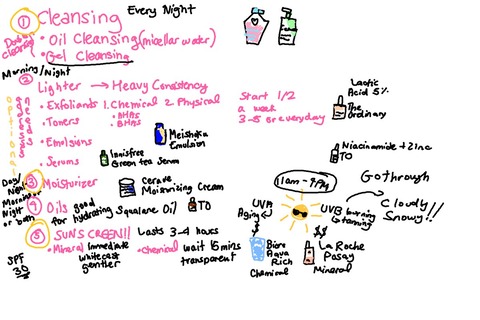 ① Cleansing Every Night
Double cleansing
• Oil Cleansing (micellar water)
• Gel Cleansing
Morning/Night
② Lighter → Heavy Consistency
optional
• Exfoliants 1. Chemical 2 Physical
• AHAs
• BHAs
Start 1/2
a week
3-5 or everyday
Lactic
Acid 5%
The
Ordinary
• Toners
• Emulsions
Meishoku
Emulsion
Niacinamide + Zinc
TO
• Serums
Innisfree
Green tea Serum
Day/
Night
③ Moisturizer
Cerave
Moisturizing Cream
11am - 4PM
Go through
Cloudy
Snowy!!
Morning or
Night
or both
④ Oils good
for hydrating
Squalane Oil
TO
UVA
Aging
UVB burning
& tanning
⑤ SUNSCREEN!! Lasts 3-4 hours
• Mineral Immediate
whitecast
gentler
• Chemical wait 15 mins
transparent
SPF
30
$
Biore
Aqua
Rich
Chemical
$$
La Roche
Posay
Mineral